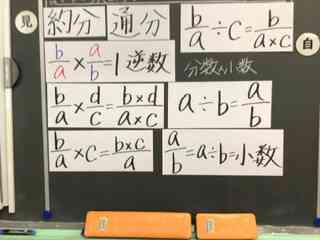 見
約分
通分
b/a ÷ c = b/a×c
自
b/a × a/b = 1 逆数
分数⇔小数
b/a × d/c = b×d/a×c
a÷b = a/b
b/a × c = b×c/a
a/b = a÷b = 小数